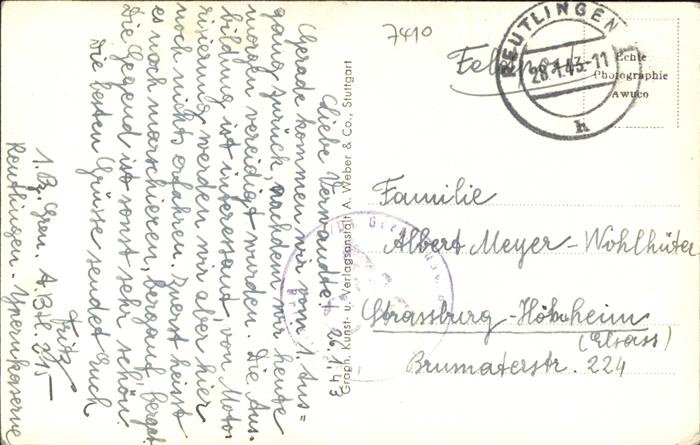 7410
Feldpost
REUTLINGEN
28.1.43.-11
h
Echte
Photographie
Awuco
Graph. Kunst- u. Verlagsanstalt A. Weber & Co., Stuttgart
Familie
Albert Meyer-Wohlhüter
Strassburg-Hönheim
(Elsass)
Brumaterstr. 224
26.1.43
Liebe Verwandte!
Gerade kommen wir vom 1. Aus=
gang zurück, nachdem wir heute
morgen vereidigt wurden. Die Aus-
bildung ist interessant, von Moto-
risierung werden wir aber hier
noch nichts erfahren. Zuerst heist
es noch marschieren, bergauf, bergab.
Die Gegend ist sonst sehr schön.
Die besten Grüsse sendet Euch
Fritz
1. Pz. Gren. A. Btl. 215
Reutlingen. Ypernkaserne